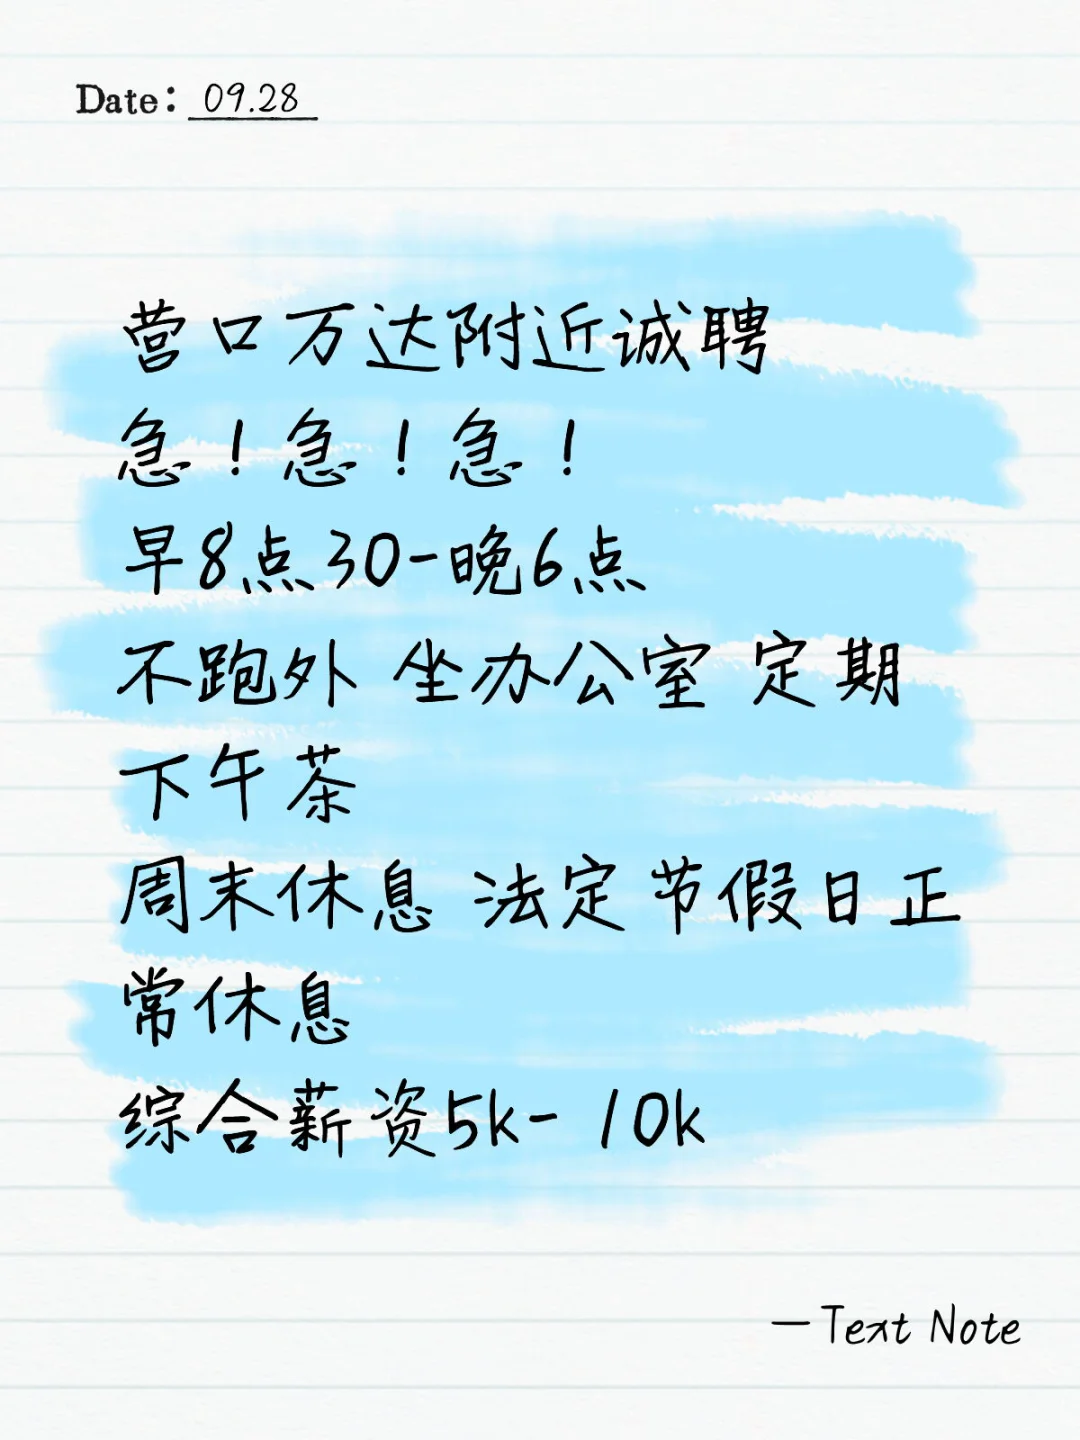 Date: 09.28
营口万达附近诚聘
急！急！急！
早8点30-晚6点
不跑外 坐办公室 定期
下午茶
周末休息 法定节假日正
常休息
综合薪资5k- 10k
—Text Note